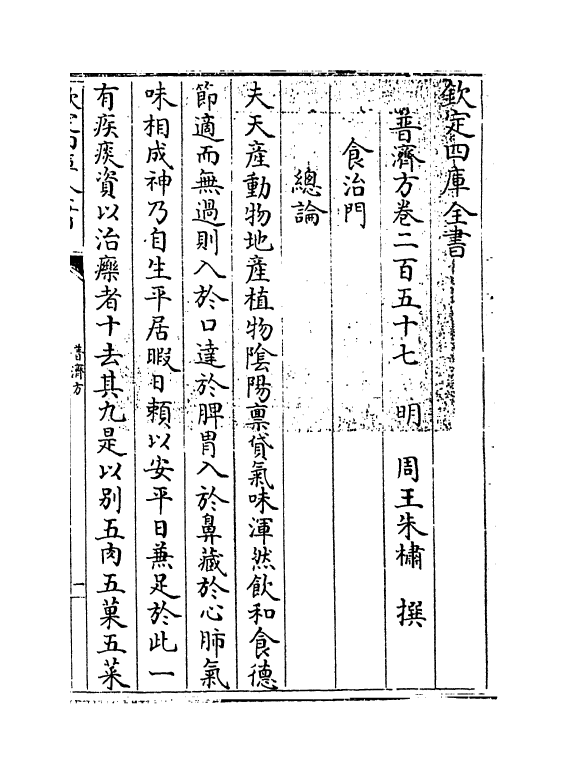 欽定四庫全書
普濟方卷二百五十七　明　周王朱橚　撰
食治門
總論
夫天產動物地產植物隂陽禀貸氣味渾然飲和食德
節適而無過則入於口達於脾胃入於鼻藏於心肺氣
味相成神乃自生平居暇日賴以安平日兼足於此一
有疾痰資以治療者十去其九是以别五肉五菓五菜
普濟方
一